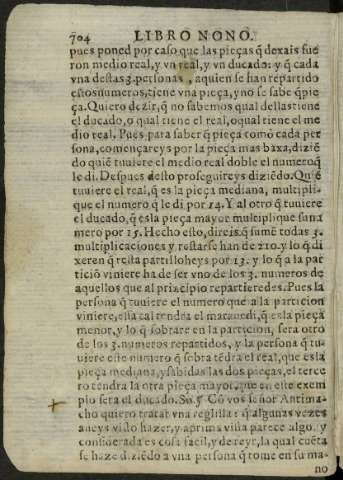 704 LIBRO NONO.
pues poned por caso que las pieças q̃ dexais fue
ron medio real, y vn real, y vn ducado: y q̃ cada
vna destas 3. personas, a quien se han repartido
estos numeros, tiene vna pieça, y no se sabe q̃ pie
ça. Quiero dezir, q̃ no sabemos qual dellas tiene
el ducado, o qual tiene el real, o qual tiene el me
dio real. Pues para saber q̃ pieça tomó cada per
sona, començareys por la pieça mas baxa, diziẽ
do quiẽ tuuiere el medio real doble el numero q̃
le di. Despues desto proseguireys diziẽdo. Quiẽ
tuuiere el real, q̃ es la pieça mediana, multipli-
que el numero q̃ le di por 14. Y al otro q̃ tuuiere
el ducado, q̃ es la pieça mayor multiplique su nu
mero por 15. Hecho esto, direis q̃ sumẽ todas 3.
multiplicaciones y restarse han de 210. y lo q̃ di
xeren q̃ resta partilloheys por 13. y lo q̃ a la par
ticiõ viniere ha de ser vno de los 3. numeros de
aquellos que al prĩcipio repartieredes. Pues la
persona q̃ tuuiere el numero que a la particion
viniere, essa tal tendra el q̃ es la pieça
menor, y lo q̃ sobrare en la particion, sera otro
de los 3. numeros repartidos, y la persona q̃ tu-
uiere este numero q̃ sobra tẽdra el real, que es la
pieça mediana, y sabidas las dos pieças, el terce
ro tendra la otra pieça mayor, que en este exem
pio sera el ducado. So. ꝯ Cõ vos señor Antima-
cho quiero tratar vna reglilla: q̃ algunas vezes
aueys vido hazer, y a prima vista parece algo: y
considerada es cosa facil, y de reyr, la qual cuẽta
se haze diziẽdo a vna persona q̃ tome en su ma-
no